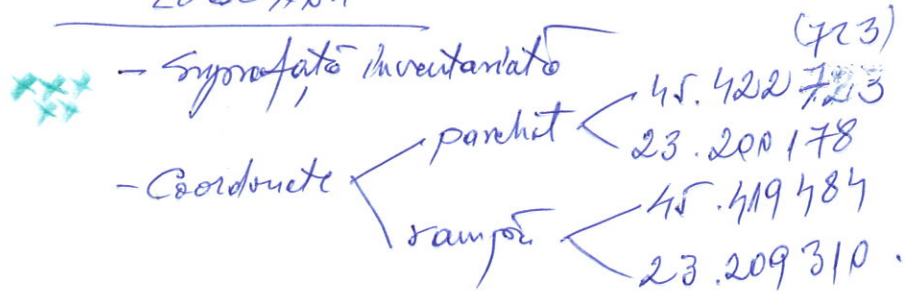 (723)
- Suprafață inventariată
- Coordonate
parchet
45.422723
23.200178
rampă
45.419484
23.209310.